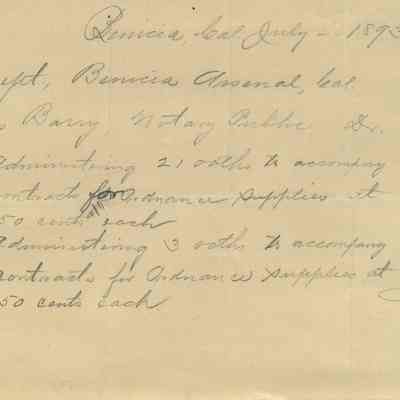 Benicia, Cal July - 1893
ept, Benicia Arsenal, Cal.
s Barry, Notary Public Dr.
Administering 21 oaths to accompany
contracts for Ordnance Supplies at
50 cents each
Administering 3 oaths to accompany
contracts for Ordnance Supplies at
50 cents each